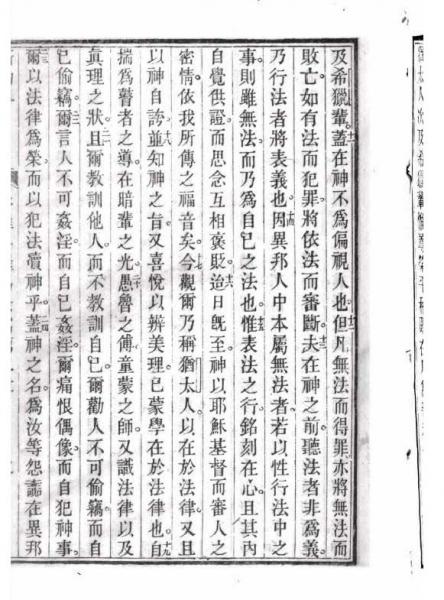 及希獵輩蓋在神不爲偏視人也但凡無法而得罪亦將無法而
敗亡如有法而犯罪將依法而審斷夫在神之前聽法者非爲義
乃行法者將表義也因異邦人中本屬無法者若以性行法中之
事則雖無法而乃爲自己之法也惟表法之行銘刻在心且其內
自覺供證而思念互相褒貶迨日既至神以耶穌基督而審人之
密情依我所傳之福音矣今觀爾乃稱猶太人以在於法律又且
以神自誇並知神之旨又喜悅以辨美理已蒙學在於法律也自
揣爲瞽者之導在暗輩之光愚魯之傅童蒙之師又識法律以及
眞理之狀且爾教訓他人而不教訓自己爾勸人不可偷竊而自
己偷竊爾言人不可姦淫而自己姦淫爾痛恨偶像而自犯神事
爾以法律爲榮而以犯法凟神乎蓋神之名爲汝等怨讟在異邦